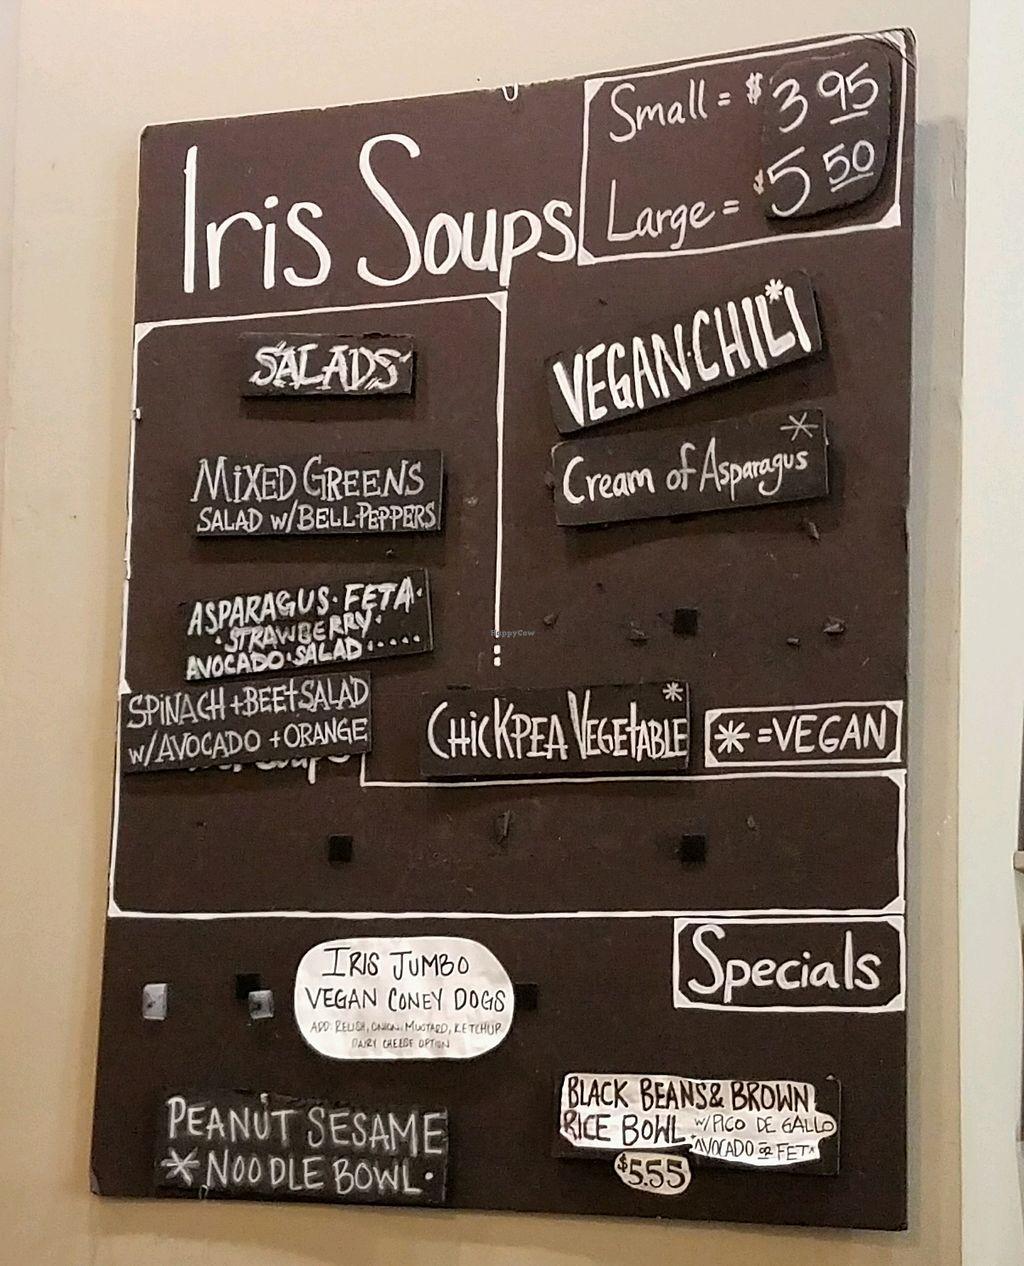 Iris Soups
Small = $3 95
Large = $5 50
SALADS
MIXED GREENS
SALAD W/BELL PEPPERS
ASPARAGUS · FETA ·
· STRAWBERRY ·
AVOCADO · SALAD · ....
SPINACH + BEET SALAD
W/AVOCADO + ORANGE
VEGAN · CHILI *
Cream of Asparagus *
HappyCow
CHICKPEA VEGETABLE *
* = VEGAN
Specials
IRIS JUMBO
VEGAN CONEY DOGS
ADD: RELISH, ONION, MUSTARD, KETCHUP
DAIRY CHEESE OPTION
PEANUT SESAME
* NOODLE BOWL ·
BLACK BEANS & BROWN
RICE BOWL W/PICO DE GALLO
AVOCADO OR FETA
$5.55